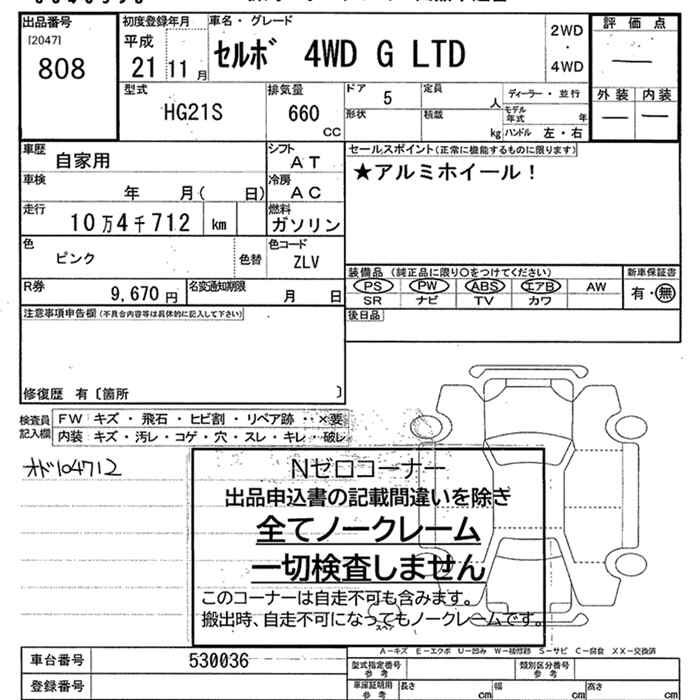 出品番号
[2047]
808
初度登録年月
平成
21 11月
車名・グレード
セルボ 4WD G LTD
2WD
・
4WD
評価点
―
外装 内装
― ―
型式
HG21S
排気量
660
CC
ドア 5
定員 人
ディーラー・並行
モデル年式 年
形状
積載 kg
ハンドル 左・右
車歴
自家用
シフト
AT
車検
年 月( 日)
冷房
AC
走行
10万4千712 km
燃料
ガソリン
色
ピンク
色替
色コード
ZLV
R券
9,670円
名変通知期限
月 日
セールスポイント(正常に機能するものに限ります)
★アルミホイール!
装備品 (純正品に限り○をつけてください)
新車保証書
PS PW ABS エアB AW
有・無
SR ナビ TV カワ
後日品
注意事項申告欄(不具合内容等は具体的に記入して下さい)
修復歴 有〔箇所 〕
検査員記入欄
FW キズ・飛石・ヒビ割・リペア跡・・×要
内装 キズ・汚レ・コゲ・穴・スレ・キレ・破レ
オド104712
Nゼロコーナー
出品申込書の記載間違いを除き
全てノークレーム
一切検査しません
このコーナーは自走不可も含みます。
搬出時、自走不可になってもノークレームです。
スペア
A-キズ E-エクボ U-凹み W-補修跡 S-サビ C-腐食 XX-交換済
車台番号 530036
登録番号
型式指定番号 参考
類別区分番号 参考
車庫証明用 参考
長さ cm 幅 cm 高さ cm